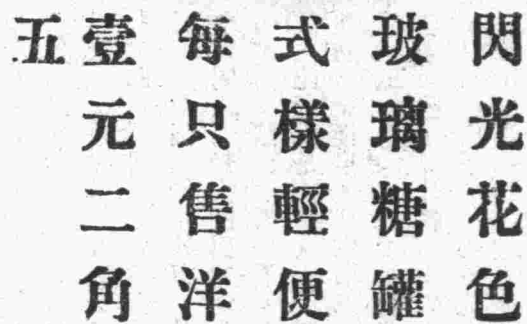 閃光花色
玻璃糖罐
式樣輕便
每只售洋
壹元二角
五